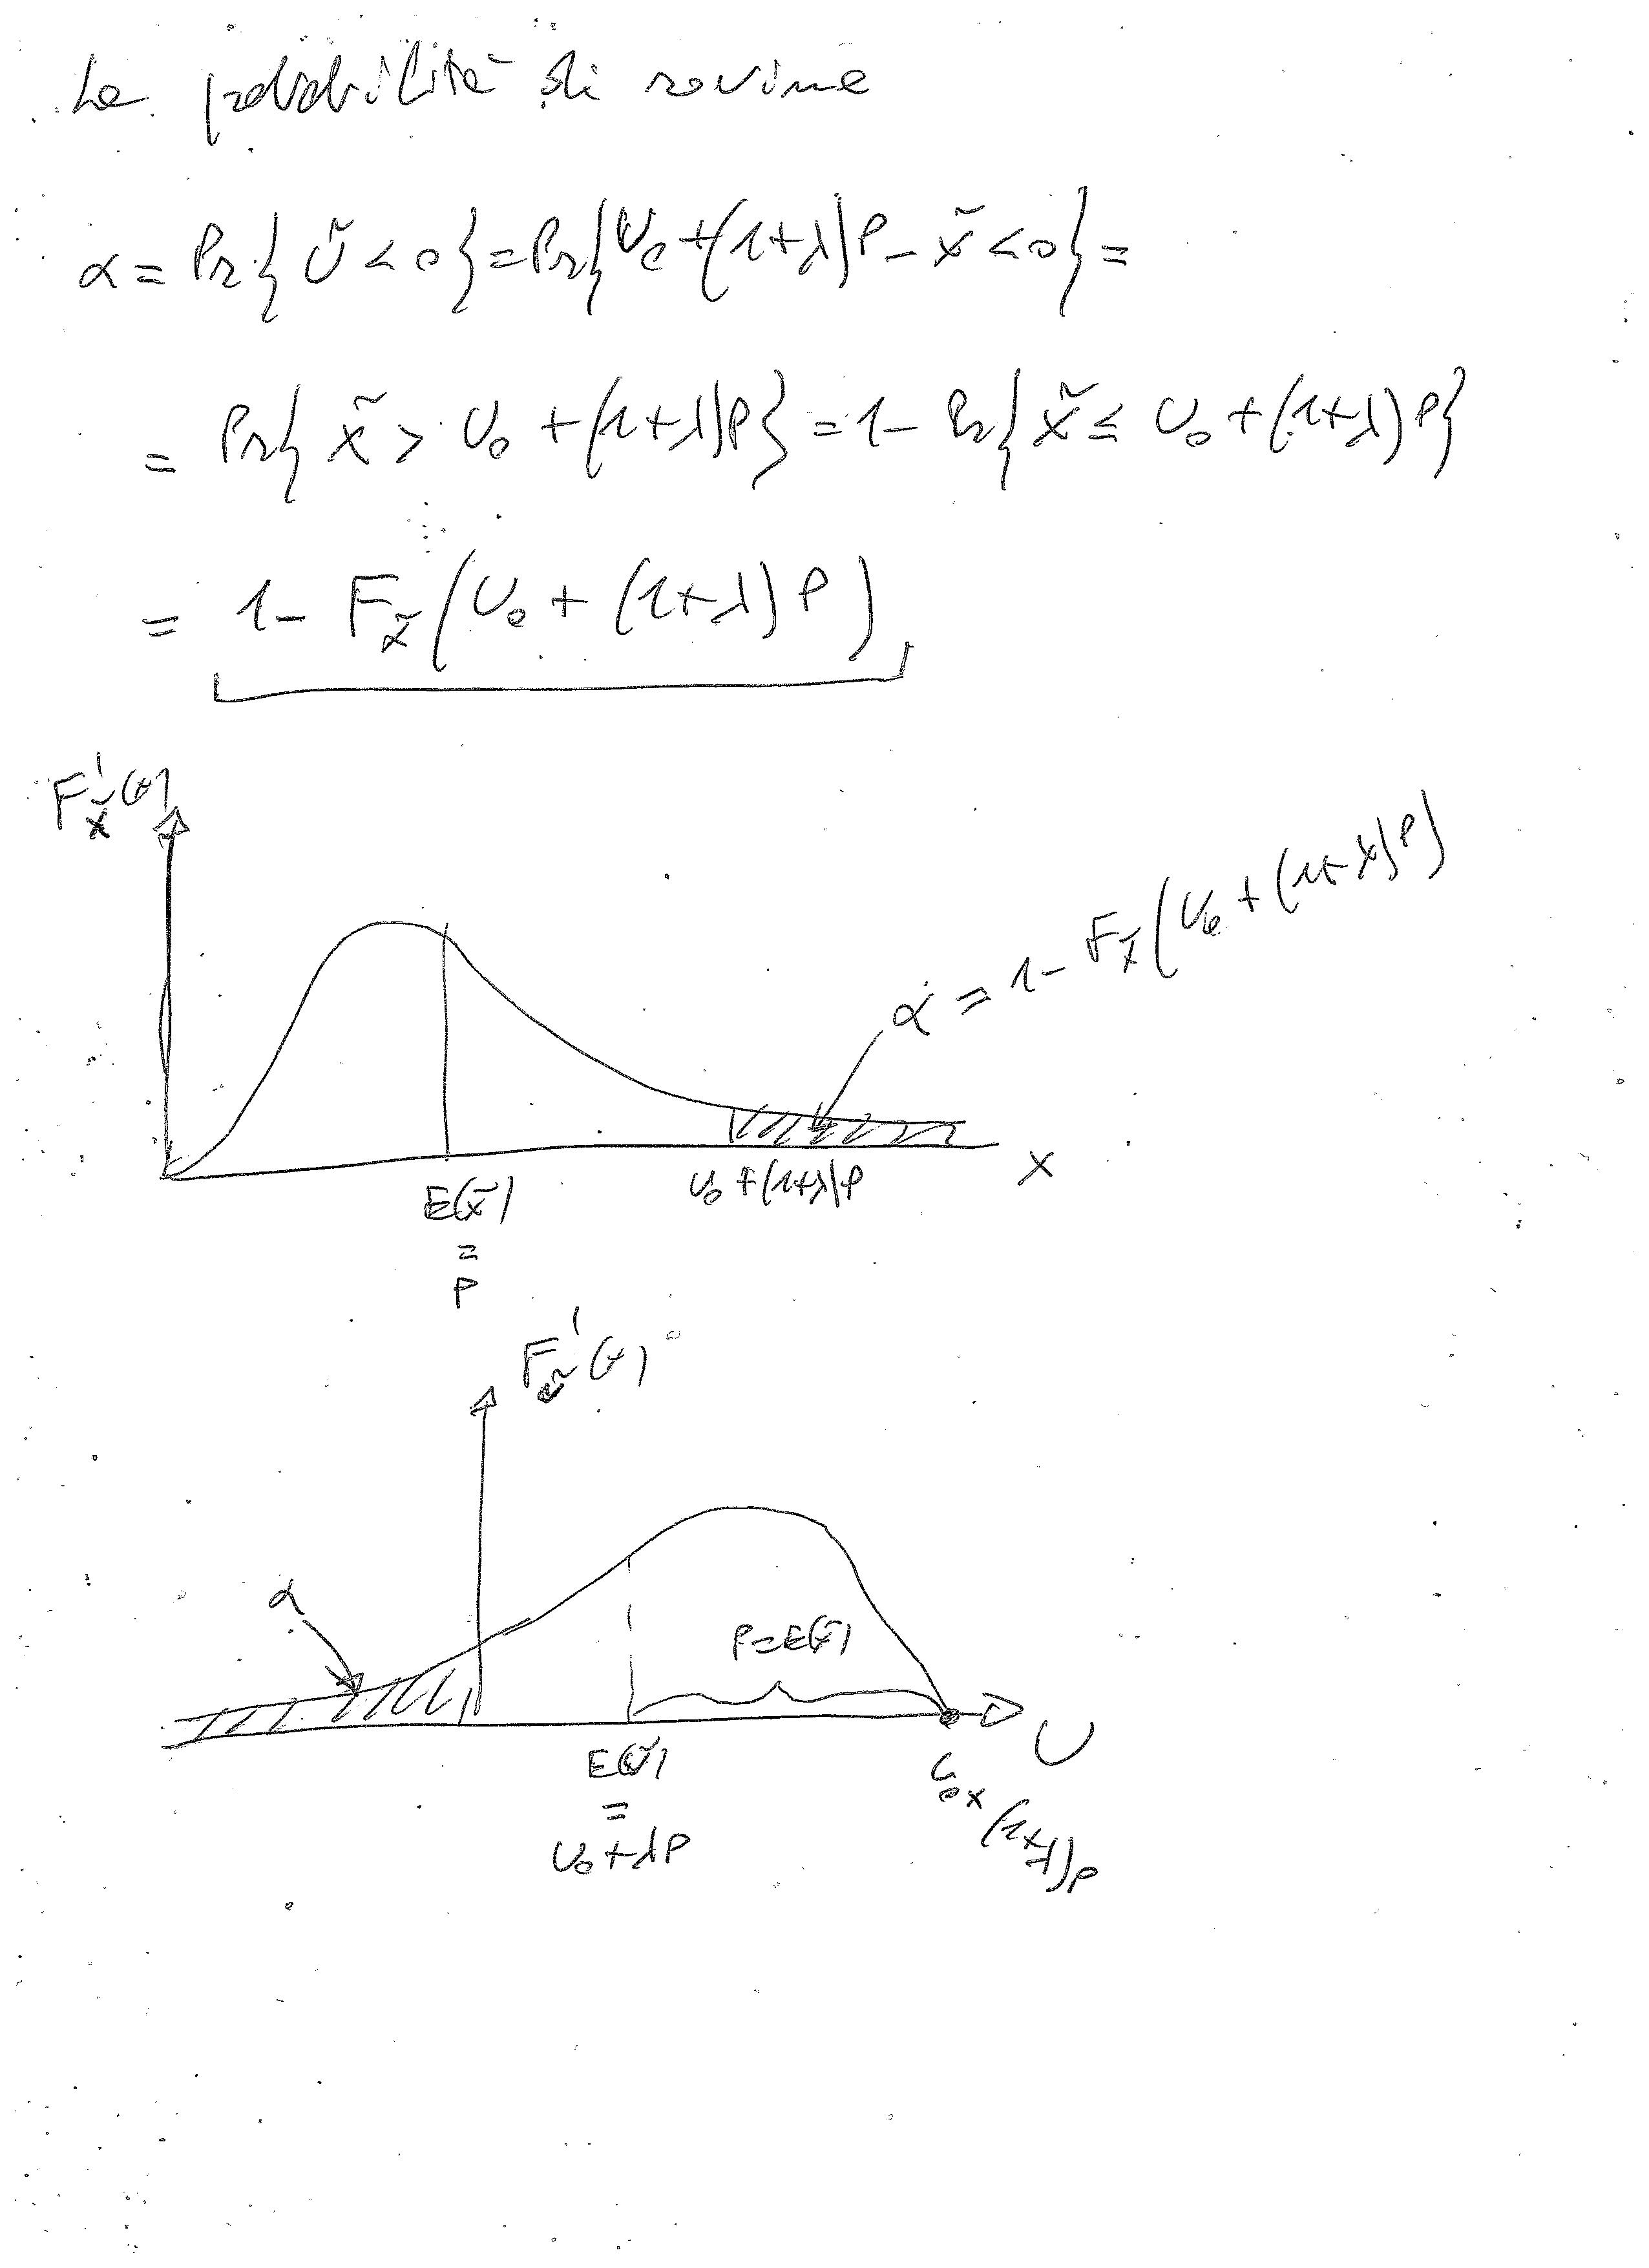 La probabilità di rovina
α = Pr{ Ũ < 0 } = Pr{ U₀ + (1+λ)P - X̃ < 0 } =
= Pr{ X̃ > U₀ + (1+λ)P } = 1 - Pr{ X̃ ≤ U₀ + (1+λ)P }
= 1 - F_X̃ (U₀ + (1+λ)P)
F'_X̃(x)
α = 1 - F_X̃ (U₀ + (1+λ)P)
X
E(X̃)
=
P
U₀ + (1+λ)P
F'_Ũ(x)
α
P = E(X̃)
U
E(Ũ)
=
U₀ + λP
U₀ + (1+λ)P